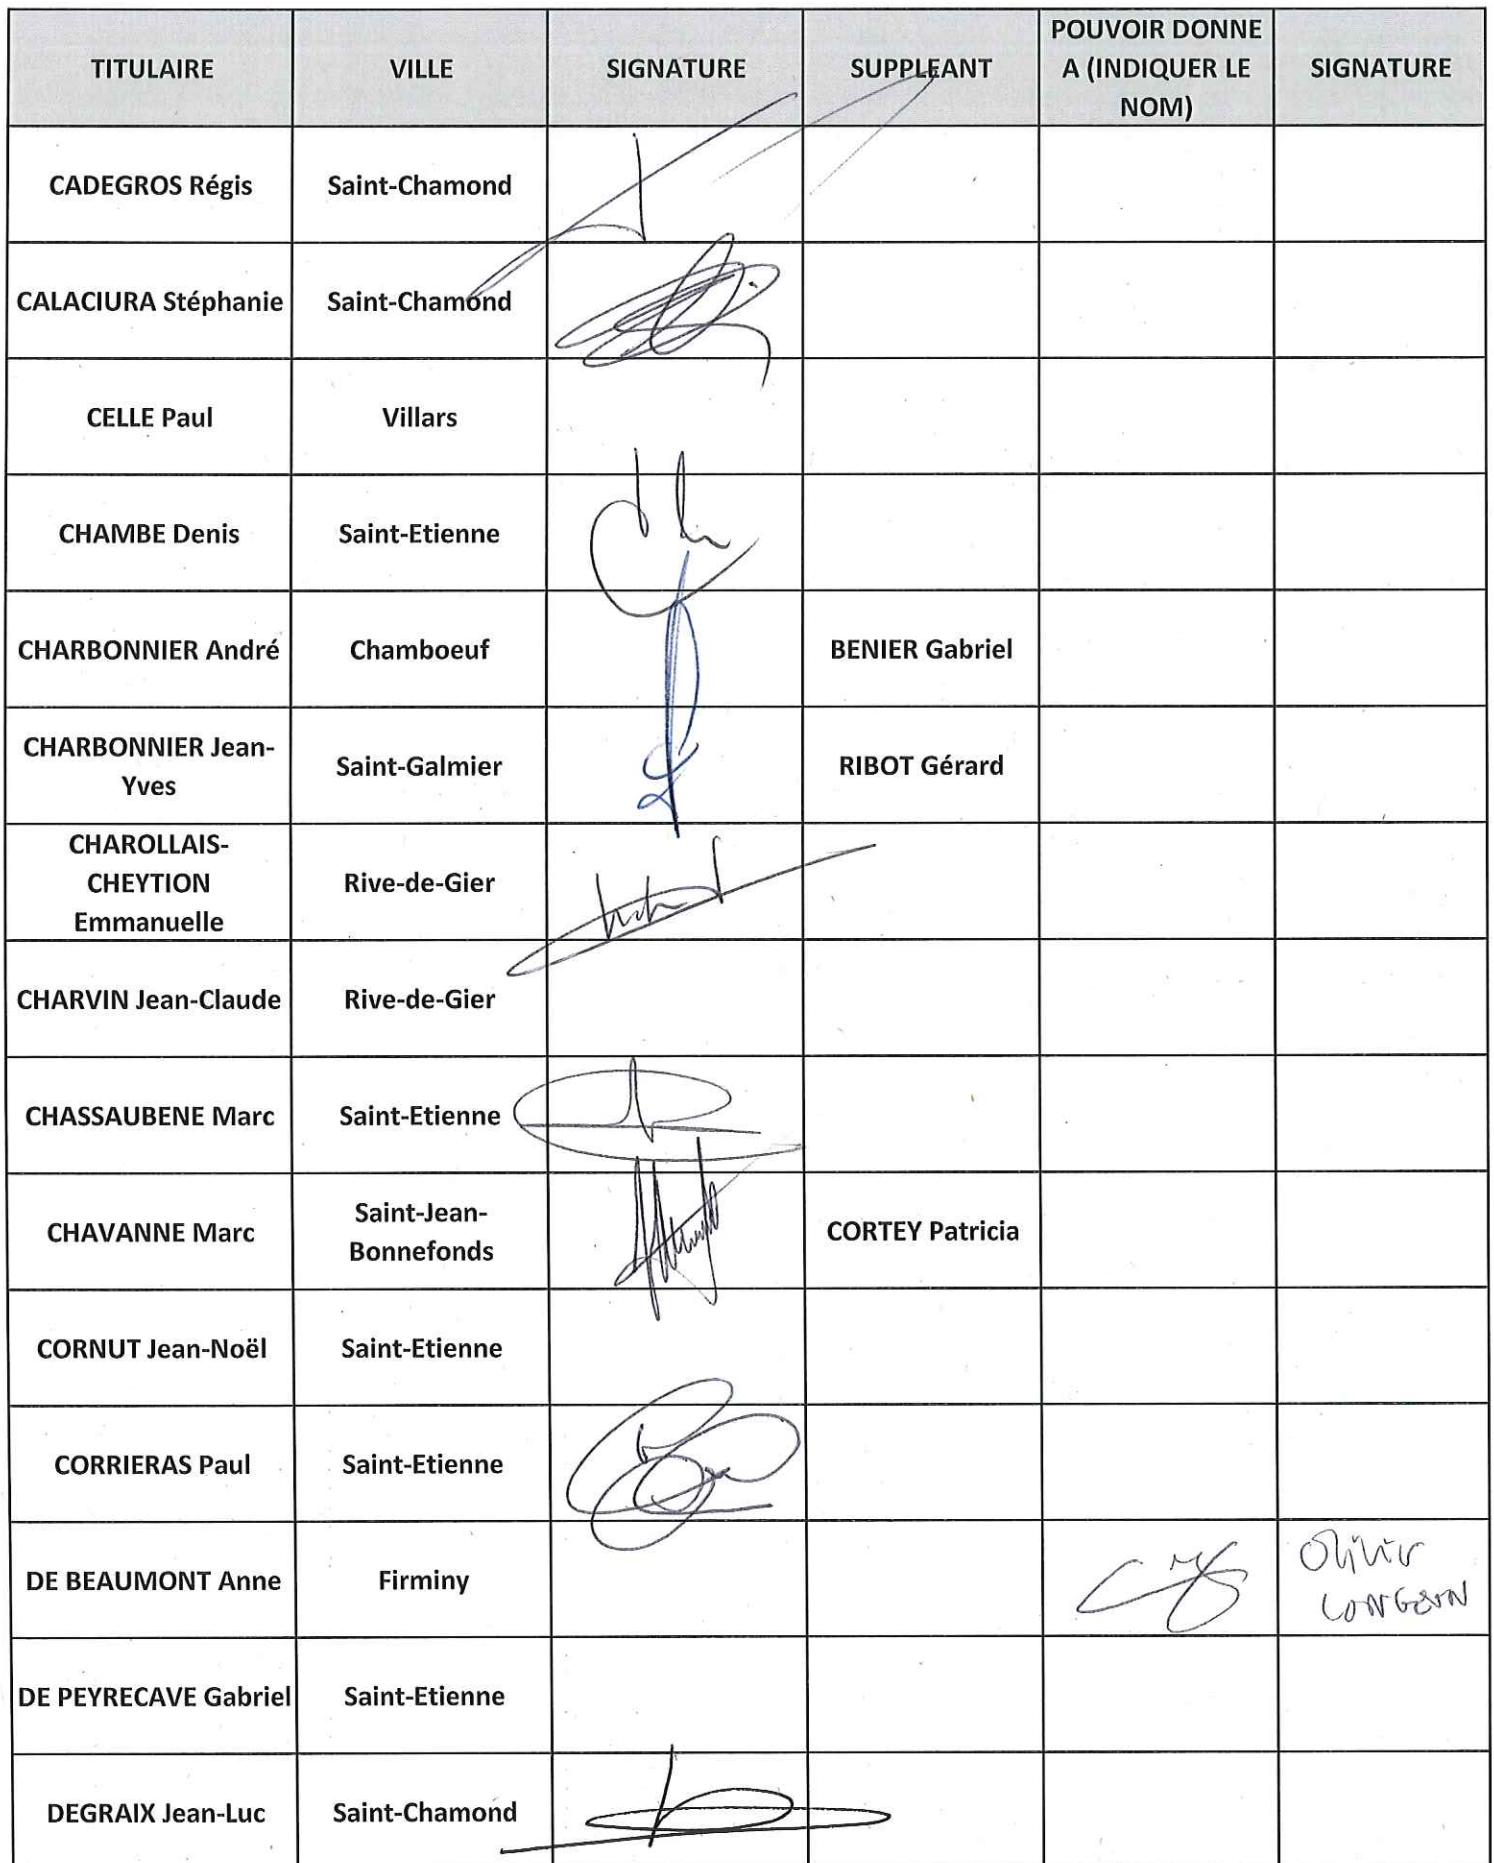 TITULAIRE VILLE SIGNATURE SUPPLEANT POUVOIR DONNE
A (INDIQUER LE
NOM) SIGNATURE
CADEGROS Régis Saint-Chamond
CALACIURA Stéphanie Saint-Chamond
CELLE Paul Villars
CHAMBE Denis Saint-Etienne
CHARBONNIER André Chamboeuf BENIER Gabriel
CHARBONNIER Jean-
Yves Saint-Galmier RIBOT Gérard
CHAROLLAIS-
CHEYTION
Emmanuelle Rive-de-Gier
CHARVIN Jean-Claude Rive-de-Gier
CHASSAUBENE Marc Saint-Etienne
CHAVANNE Marc Saint-Jean-
Bonnefonds CORTEY Patricia
CORNUT Jean-Noël Saint-Etienne
CORRIERAS Paul Saint-Etienne
DE BEAUMONT Anne Firminy Olivier
LONGEON
DE PEYRECAVE Gabriel Saint-Etienne
DEGRAIX Jean-Luc Saint-Chamond